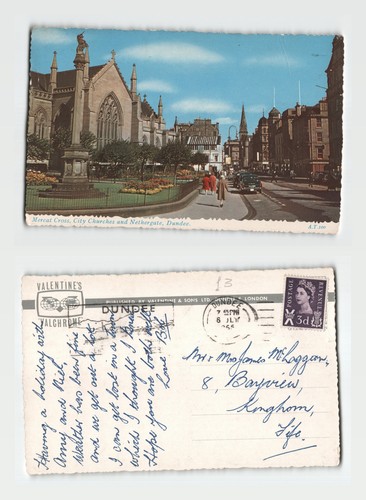 Mercat Cross, City Churches and Nethergate, Dundee.
A.T.
VALENTINE'S
VALCHROME
PUBLISHED BY VALENTINE & SONS LTD. DUNDEE & LONDON.
DUNDEE
DUNDEE
6 JLY
POSTAGE
REVENUE
3d
Having a holiday with
Amy and Neil,
Weather has been fine
and we get out a lot
I can get lost on a bus
which I thought I knew
Hope you are both well
Love
Mr & Mrs James McLaggan,
8, Bayview,
Kinghorn,
Fife.